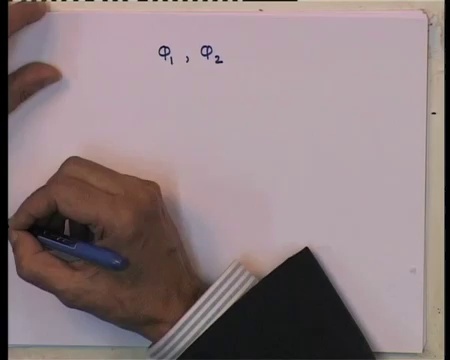 Φ₁ , Φ₂